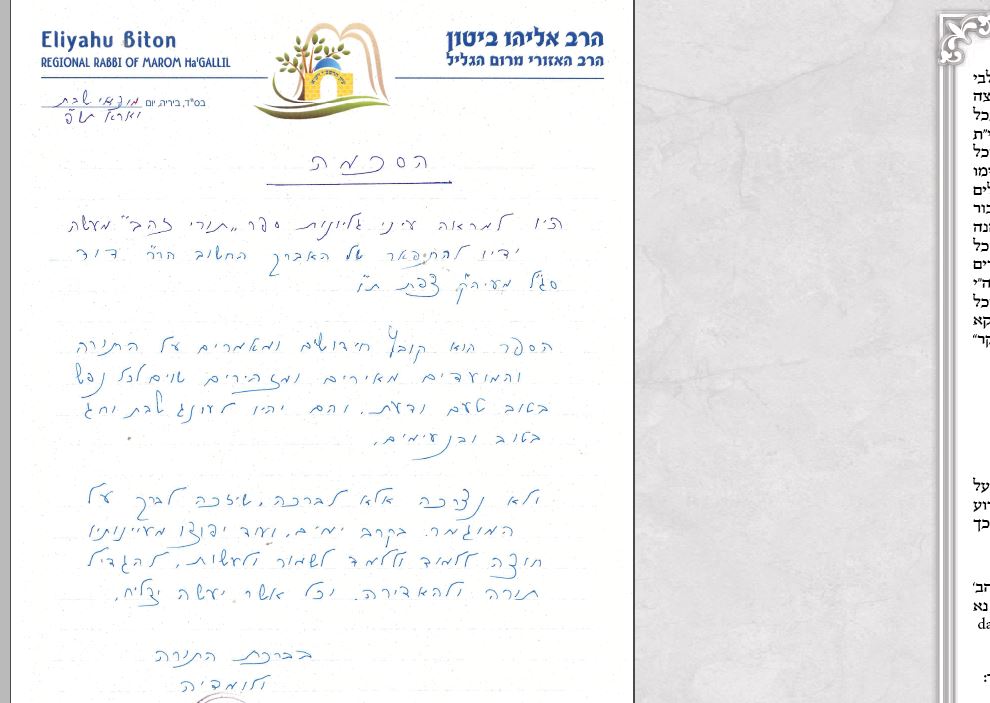 Eliyahu Biton
REGIONAL RABBI OF MAROM Ha'GALLIL
הרב אליהו ביטון
הרב האזורי מרום הגליל
בס"ד, ביריה, יום מוצאי שבת
וארא תש"פ
הסכמה
היו למראה עיני גליונות ספר "תורי זהב" מעשה
ידיו להתפאר של האברך החשוב הרה"ג דוד
סג"ל מעיה"ק צפת ת"ו
הספר הוא קובץ חידושים ומאמרים על התורה
והמועדים מאירים ומזהירים שוים לכל נפש
בטוב טעם ודעת. והם יהיו לעונג שבת וחג
בטוב ובנעימים.
ולא נצרכה אלא לברכה, שיזכה לברך על
המוגמר בקרב ימים, ועוד יפוצו מעיינותיו
חוצה ללמוד וללמד לשמור ולעשות, להגדיל
תורה ולהאדירה. וכל אשר יעשה יצליח.
בברכת התורה
ולומדיה
לבי
צה
כל
י"ת
כל
ימו
לים
בור
זנה
כל
רים
ה"י
כל
קא
קר"
על
דוע
כך
הב'
נא
da
ר: